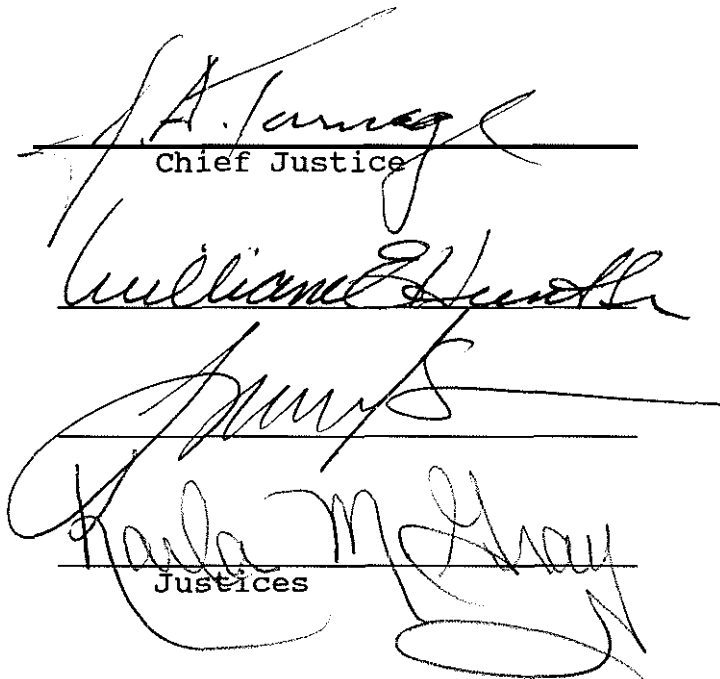 J. A. Turnage
Chief Justice
William E Hunt Sr
Karla M Gray
Justices